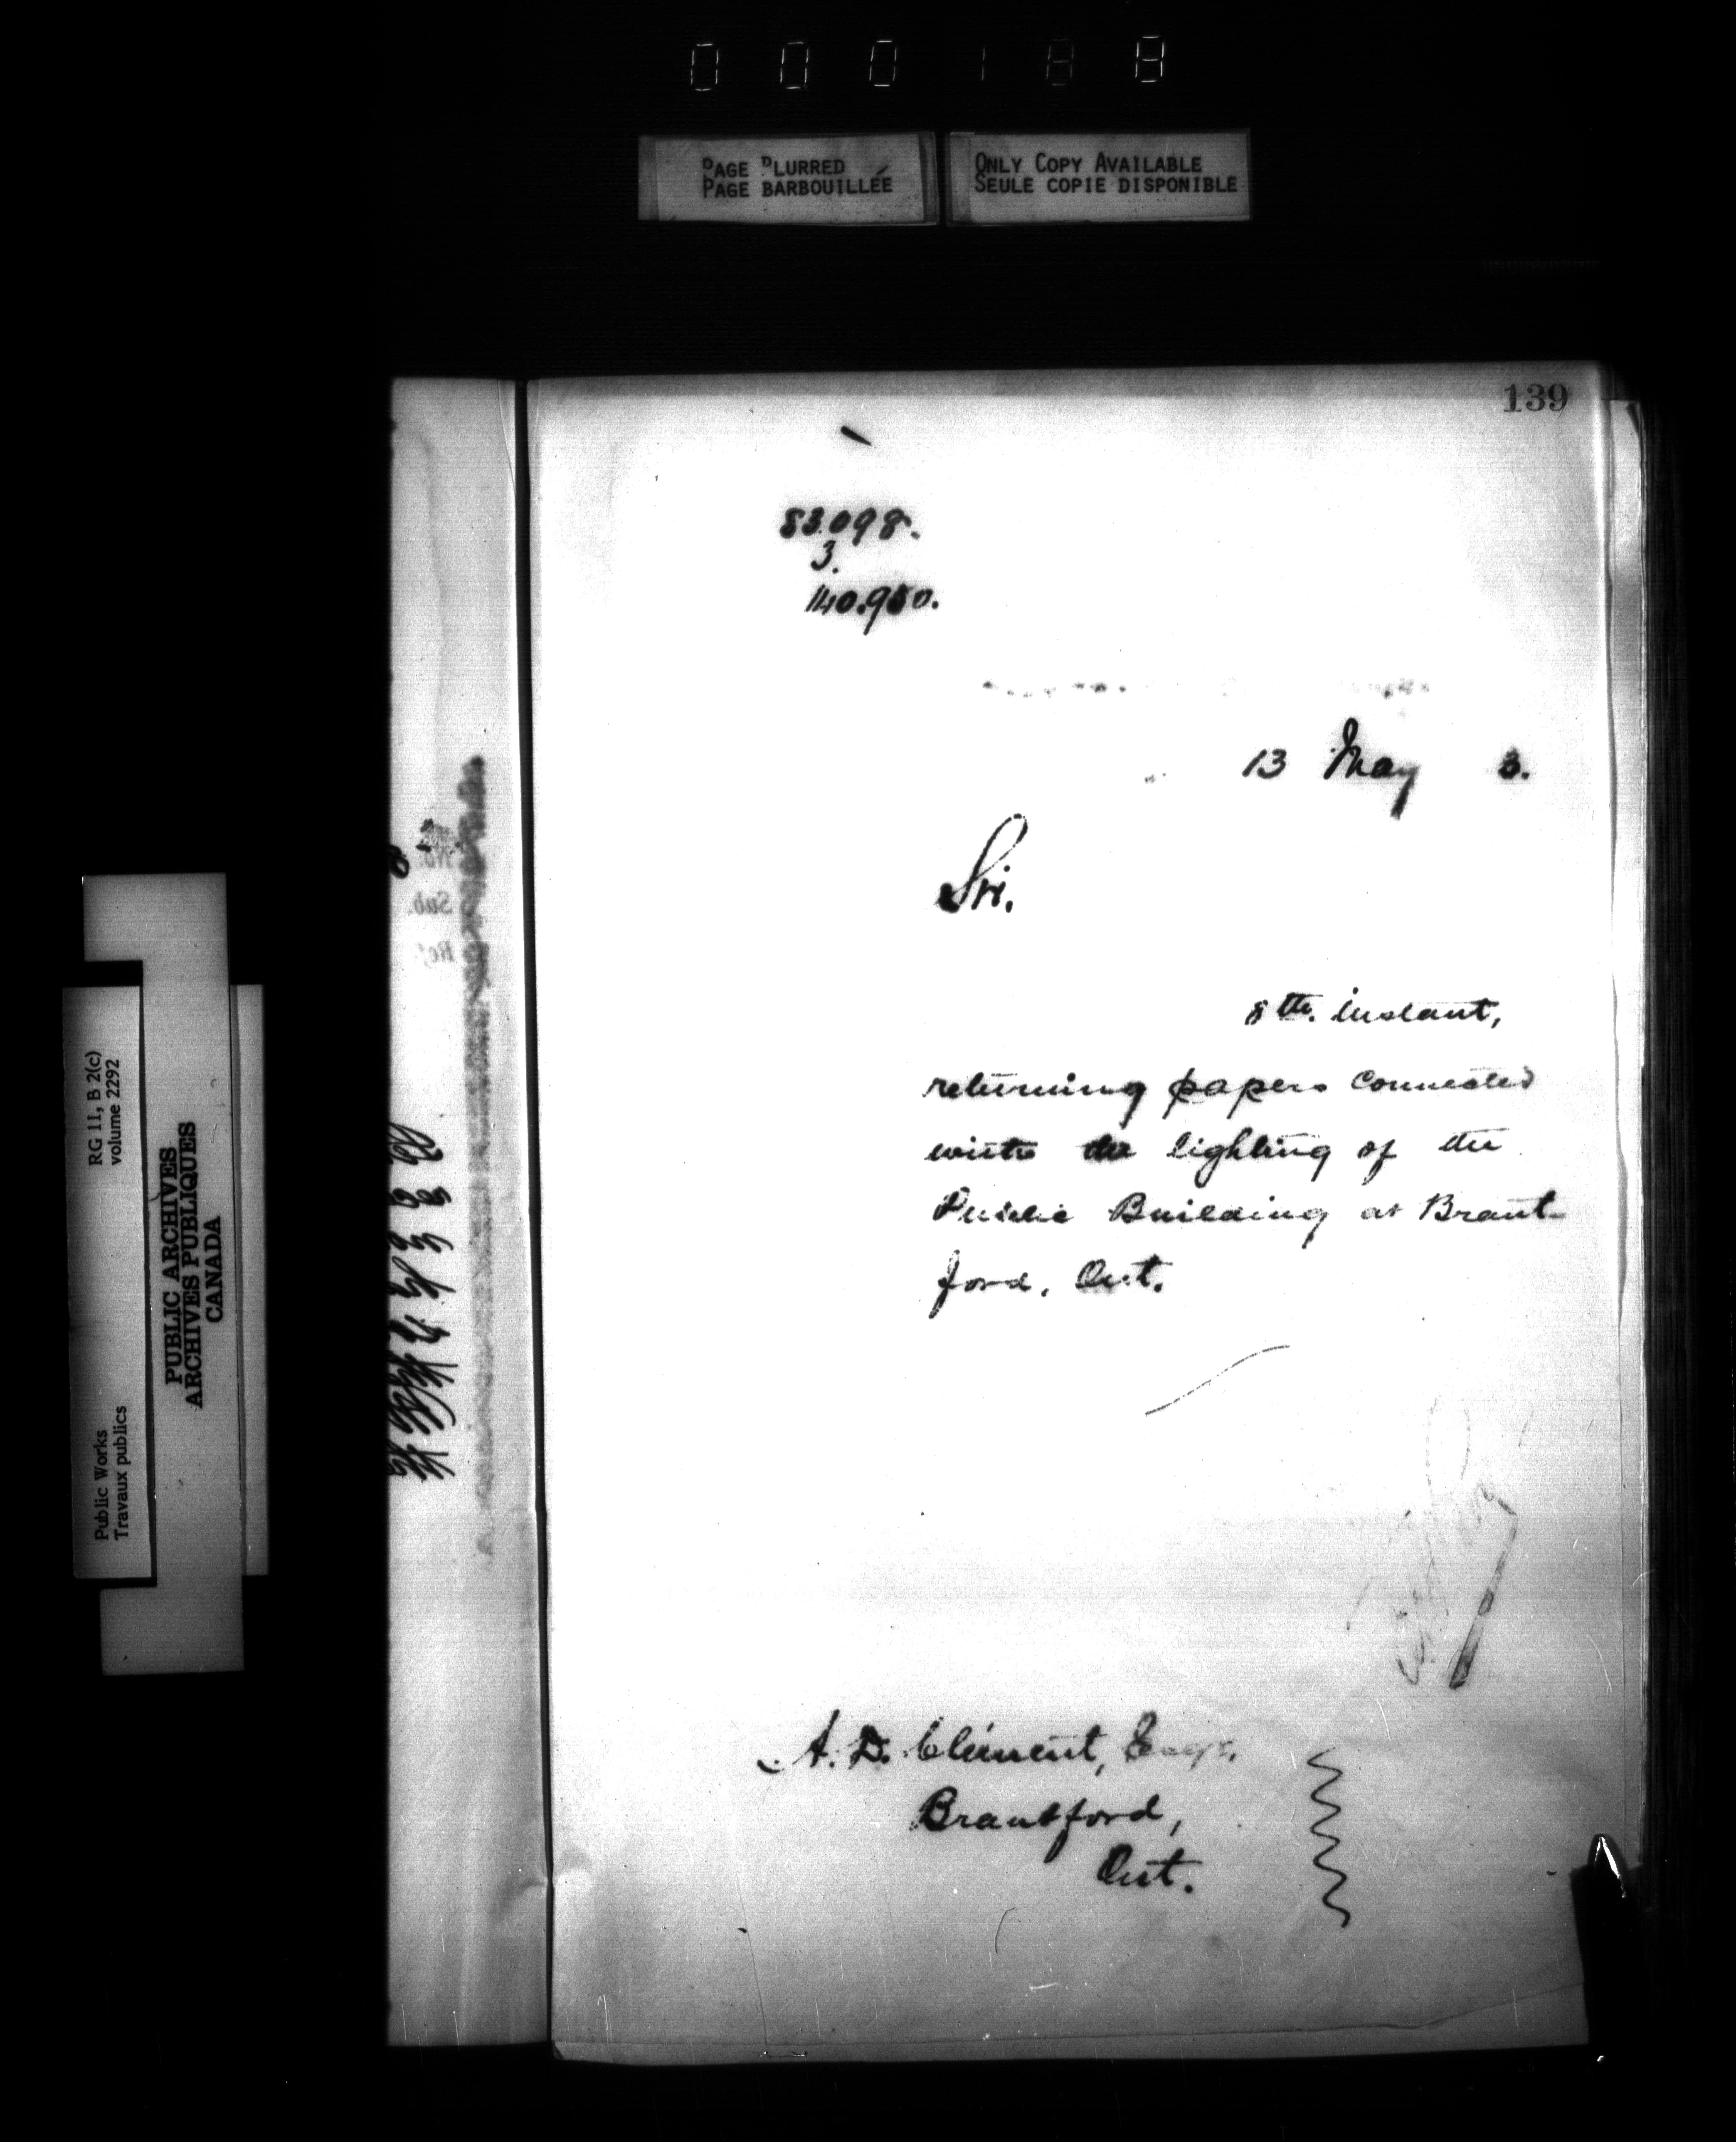 000188
PAGE BLURRED
PAGE BARBOUILLÉE
ONLY COPY AVAILABLE
SEULE COPIE DISPONIBLE
139
83.098.
3.
140.950.
13 May 3.
Sir.
8th. instant,
returning papers connected
with the lighting of the
Public Building at Brant-
ford, Ont.
A. D. Clément, Esqr.
Brantford,
Ont.
No.
Sub.
Ref.
RG 11, B 2(c)
volume 2292
PUBLIC ARCHIVES
ARCHIVES PUBLIQUES
CANADA
Public Works
Travaux publics